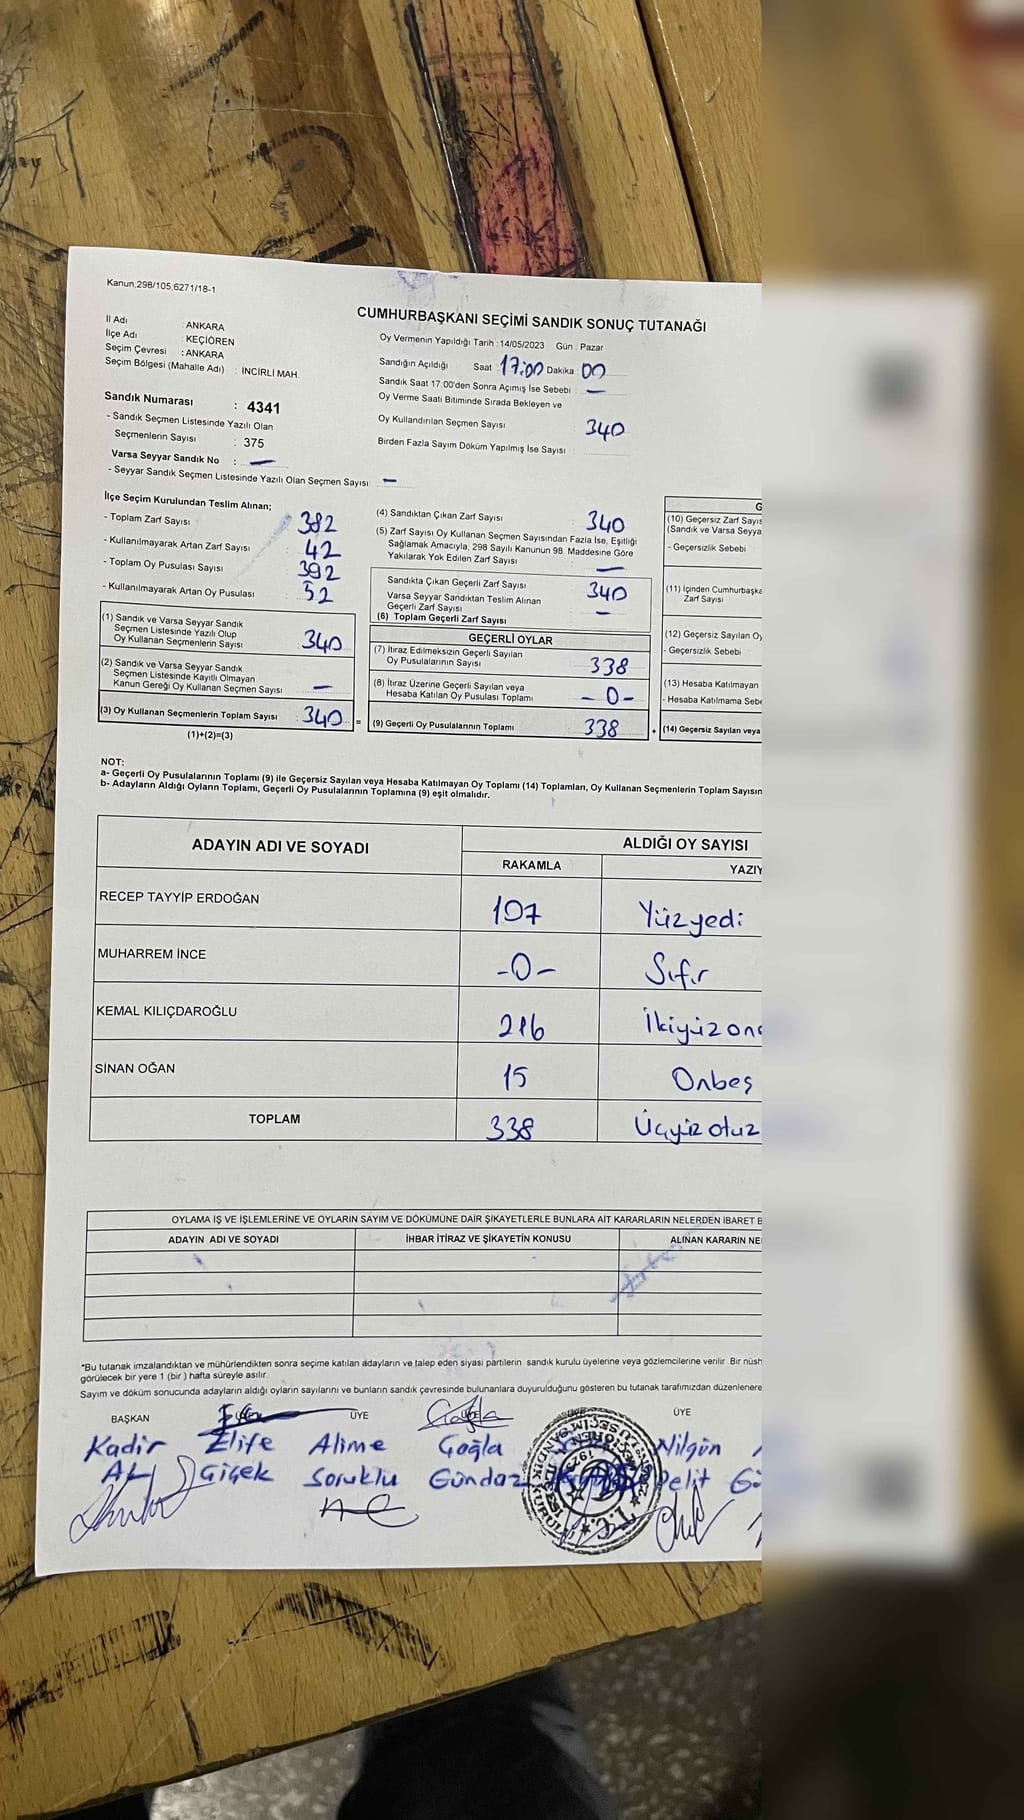 Kanun.298/105,6271/18-1
CUMHURBAŞKANI SEÇİMİ SANDIK SONUÇ TUTANAĞI
İl Adı : ANKARA
İlçe Adı : KEÇİÖREN
Seçim Çevresi : ANKARA
Seçim Bölgesi (Mahalle Adı) : İNCİRLİ MAH.
Sandık Numarası : 4341
- Sandık Seçmen Listesinde Yazılı Olan
Seçmenlerin Sayısı : 375
Varsa Seyyar Sandık No : —
- Seyyar Sandık Seçmen Listesinde Yazılı Olan Seçmen Sayısı —
Oy Vermenin Yapıldığı Tarih : 14/05/2023 Gün : Pazar
Sandığın Açıldığı Saat 17:00 Dakika 00
Sandık Saat 17.00'den Sonra Açımış İse Sebebi : —
Oy Verme Saati Bitiminde Sırada Bekleyen ve
Oy Kullandırılan Seçmen Sayısı 340
Birden Fazla Sayım Döküm Yapılmış İse Sayısı
İlçe Seçim Kurulundan Teslim Alınan;
- Toplam Zarf Sayısı : 382
- Kullanılmayarak Artan Zarf Sayısı : 42
- Toplam Oy Pusulası Sayısı : 392
- Kullanılmayarak Artan Oy Pusulası : 52
(1) Sandık ve Varsa Seyyar Sandık
Seçmen Listesinde Yazılı Olup
Oy Kullanan Seçmenlerin Sayısı : 340
(2) Sandık ve Varsa Seyyar Sandık
Seçmen Listesinde Kayıtlı Olmayan
Kanun Gereği Oy Kullanan Seçmen Sayısı : —
(3) Oy Kullanan Seçmenlerin Toplam Sayısı : 340 =
(1)+(2)=(3)
(4) Sandıktan Çıkan Zarf Sayısı 340
(5) Zarf Sayısı Oy Kullanan Seçmen Sayısından Fazla İse, Eşitliği
Sağlamak Amacıyla, 298 Sayılı Kanunun 98. Maddesine Göre
Yakılarak Yok Edilen Zarf Sayısı : —
Sandıkta Çıkan Geçerli Zarf Sayısı : 340
Varsa Seyyar Sandıktan Teslim Alınan
Geçerli Zarf Sayısı : —
(6) Toplam Geçerli Zarf Sayısı
GEÇERLİ OYLAR
(7) İtiraz Edilmeksizin Geçerli Sayılan
Oy Pusulalarının Sayısı 338
(8) İtiraz Üzerine Geçerli Sayılan veya
Hesaba Katılan Oy Pusulası Toplamı - 0 -
(9) Geçerli Oy Pusulalarının Toplamı 338 +
G
(10) Geçersiz Zarf Sayıs
(Sandık ve Varsa Seyya
- Geçersizlik Sebebi
(11) İçinden Cumhurbaşka
Zarf Sayısı
(12) Geçersiz Sayılan Oy
- Geçersizlik Sebebi
(13) Hesaba Katılmayan
- Hesaba Katılmama Sebe
(14) Geçersiz Sayılan veya
NOT:
a- Geçerli Oy Pusulalarının Toplamı (9) ile Geçersiz Sayılan veya Hesaba Katılmayan Oy Toplamı (14) Toplamları, Oy Kullanan Seçmenlerin Toplam Sayısın
b- Adayların Aldığı Oyların Toplamı, Geçerli Oy Pusulalarının Toplamına (9) eşit olmalıdır.
ADAYIN ADI VE SOYADI
ALDIĞI OY SAYISI
RAKAMLA YAZIY
RECEP TAYYİP ERDOĞAN 107 Yüzyedi
MUHARREM İNCE -0- Sıfır
KEMAL KILIÇDAROĞLU 216 İkiyüzona
SİNAN OĞAN 15 Onbeş
TOPLAM 338 Üçyüz otuz
OYLAMA İŞ VE İŞLEMLERİNE VE OYLARIN SAYIM VE DÖKÜMÜNE DAİR ŞİKAYETLERLE BUNLARA AİT KARARLARIN NELERDEN İBARET B
ADAYIN ADI VE SOYADI İHBAR İTİRAZ VE ŞİKAYETİN KONUSU ALINAN KARARIN NE
*Bu tutanak imzalandıktan ve mühürlendikten sonra seçime katılan adayların ve talep eden siyasi partilerin sandık kurulu üyelerine veya gözlemcilerine verilir. Bir nüsh
görülecek bir yere 1 (bir ) hafta süreyle asılır.
Sayım ve döküm sonucunda adayların aldığı oyların sayılarını ve bunların sandık çevresinde bulunanlara duyurulduğunu gösteren bu tutanak tarafımızdan düzenlenere
BAŞKAN ÜYE ÜYE
Kadir Elife Alime Çağla Nilgün
Çiçek Soruklu Gündaz Pelit